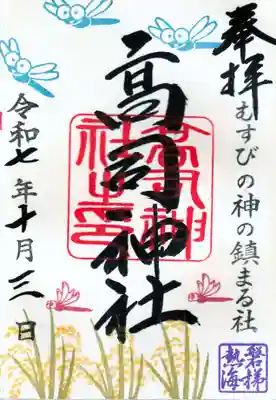 奉拝
むすびの神の鎮まる社
高司神社
令和七年十月三日
磐梯
熱海